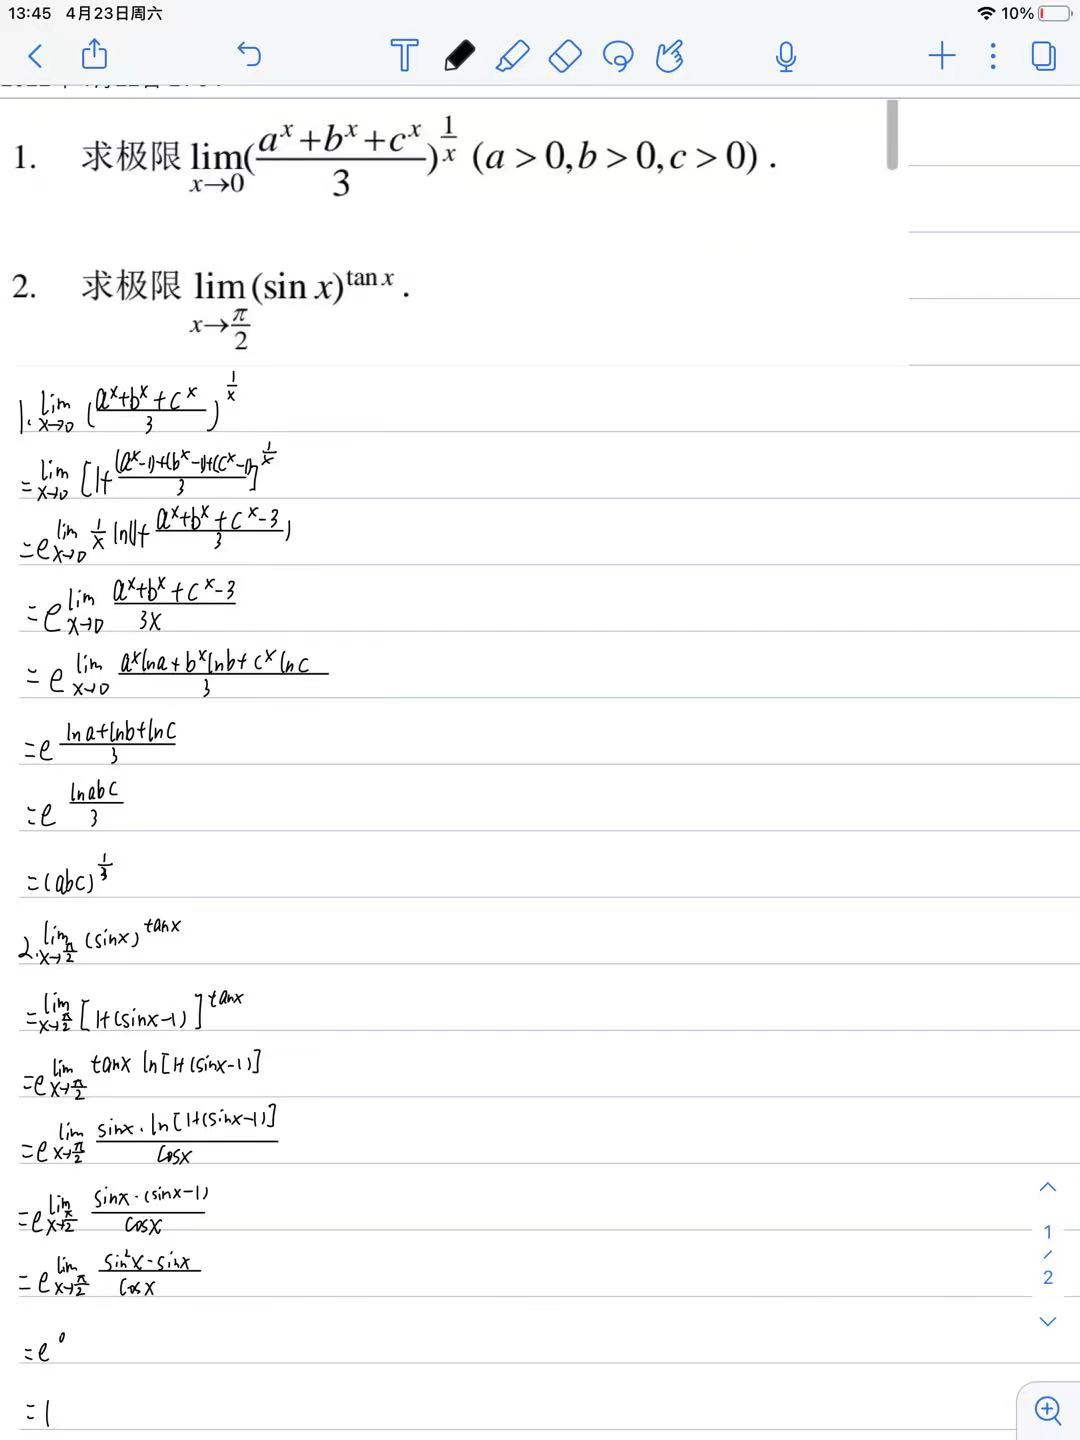 13:45 4月23日周六
10%
1. 求极限 lim(x→0) ((a^x+b^x+c^x)/3)^(1/x) (a>0,b>0,c>0).
2. 求极限 lim(x→π/2) (sin x)^(tan x).
1. lim(x→0) ((a^x+b^x+c^x)/3)^(1/x)
=lim(x→0) [1+((a^x-1)+(b^x-1)+(c^x-1))/3]^(1/x)
=e^(lim(x→0) 1/x ln(1+(a^x+b^x+c^x-3)/3))
=e^(lim(x→0) (a^x+b^x+c^x-3)/(3x))
=e^(lim(x→0) (a^x lna+b^x lnb+c^x lnc)/3)
=e^((lna+lnb+lnc)/3)
=e^(lnabc/3)
=(abc)^(1/3)
2. lim(x→π/2) (sinx)^(tanx)
=lim(x→π/2) [1+(sinx-1)]^(tanx)
=e^(lim(x→π/2) tanx ln[1+(sinx-1)])
=e^(lim(x→π/2) (sinx·ln[1+(sinx-1)])/cosx)
=e^(lim(x→π/2) (sinx·(sinx-1))/cosx)
=e^(lim(x→π/2) (sin²x-sinx)/cosx)
=e^0
=1
1
/
2